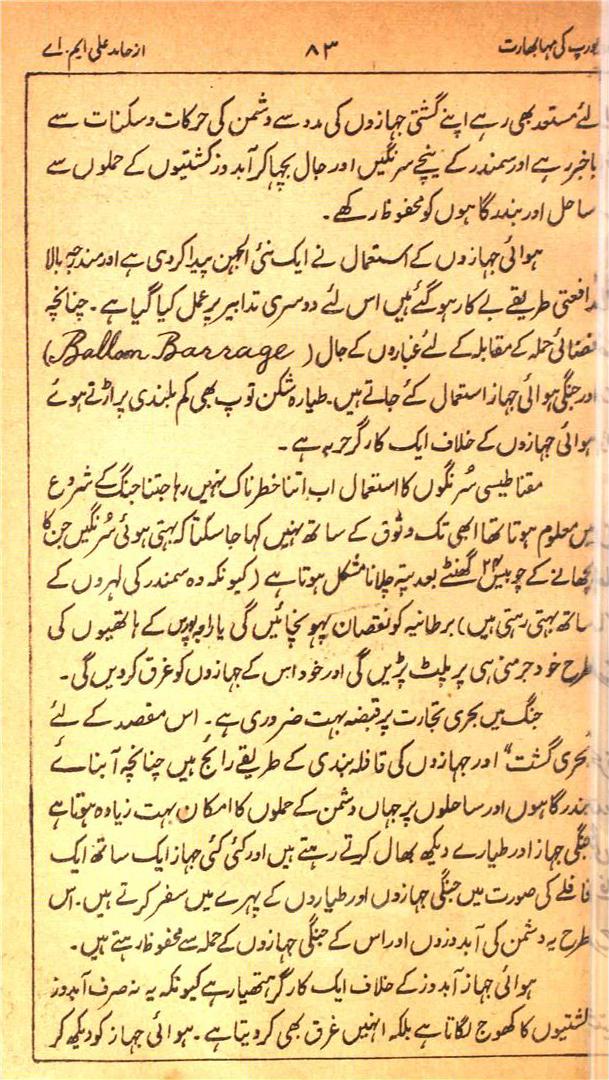 یورپ کی مہابھارت ۸۳ از حامد علی ایم۔اے
لئے مستعد بھی رہے اپنے گشتی جہازوں کی مدد سے دشمن کی حرکات و سکنات سے
باخبر رہے اور سمندر کے نیچے سرنگیں اور جال بچھا کر آبدوز کشتیوں کے حملوں سے
ساحل اور بندرگاہوں کو محفوظ رکھے۔
ہوائی جہازوں کے استعمال نے ایک نئی الجھن پیدا کر دی ہے اور مندرجہ بالا
مدافعتی طریقے بے کار ہو گئے ہیں اس لئے دوسری تدابیر پر عمل کیا گیا ہے۔ چنانچہ
فضائی حملہ کے مقابلہ کے لئے غباروں کے جال (Balloon Barrage)
اور جنگی ہوائی جہاز استعمال کئے جاتے ہیں۔ طیارہ شکن توپ بھی کم بلندی پر اڑتے ہوئے
ہوائی جہازوں کے خلاف ایک کارگر حربہ ہے۔
مقناطیسی سُرنگوں کا استعمال اب اتنا خطرناک نہیں رہا جتنا جنگ کے شروع
میں معلوم ہوتا تھا ابھی تک وثوق کے ساتھ نہیں کہا جا سکتا کہ بہتی ہوئی سُرنگیں جن کا
بچھانے کے چوبیس ۲۴ گھنٹے بعد پتہ چلانا مشکل ہوتا ہے (کیونکہ وہ سمندر کی لہروں کے
ساتھ بہتی رہتی ہیں) برطانیہ کو نقصان پہونچائیں گی یا راجہ پورس کے ہاتھیوں کی
طرح خود جرمنی ہی پر پلٹ پڑیں گی اور خود اس کے جہازوں کو غرق کر دیں گی۔
جنگ میں بحری تجارت پر قبضہ بہت ضروری ہے۔ اس مقصد کے لئے
"بحری گشت" اور جہازوں کی قافلہ بندی کے طریقے رائج ہیں چنانچہ آبنائے
بندرگاہوں اور ساحلوں پر جہاں دشمن کے حملوں کا امکان بہت زیادہ ہوتا ہے
جنگی جہاز اور طیارے دیکھ بھال کرتے رہتے ہیں اور کئی کئی جہاز ایک ساتھ ایک
قافلے کی صورت میں جنگی جہازوں اور طیاروں کے پہرے میں سفر کرتے ہیں۔ اس
طرح یہ دشمن کی آبدوزوں اور اس کے جنگی جہازوں کے حملہ سے محفوظ رہتے ہیں۔
ہوائی جہاز آبدوز کے خلاف ایک کارگر ہتھیار ہے کیونکہ یہ نہ صرف آبدوز
کشتیوں کا کھوج لگاتا ہے بلکہ انہیں غرق بھی کر دیتا ہے۔ ہوائی جہاز کو دیکھ کر